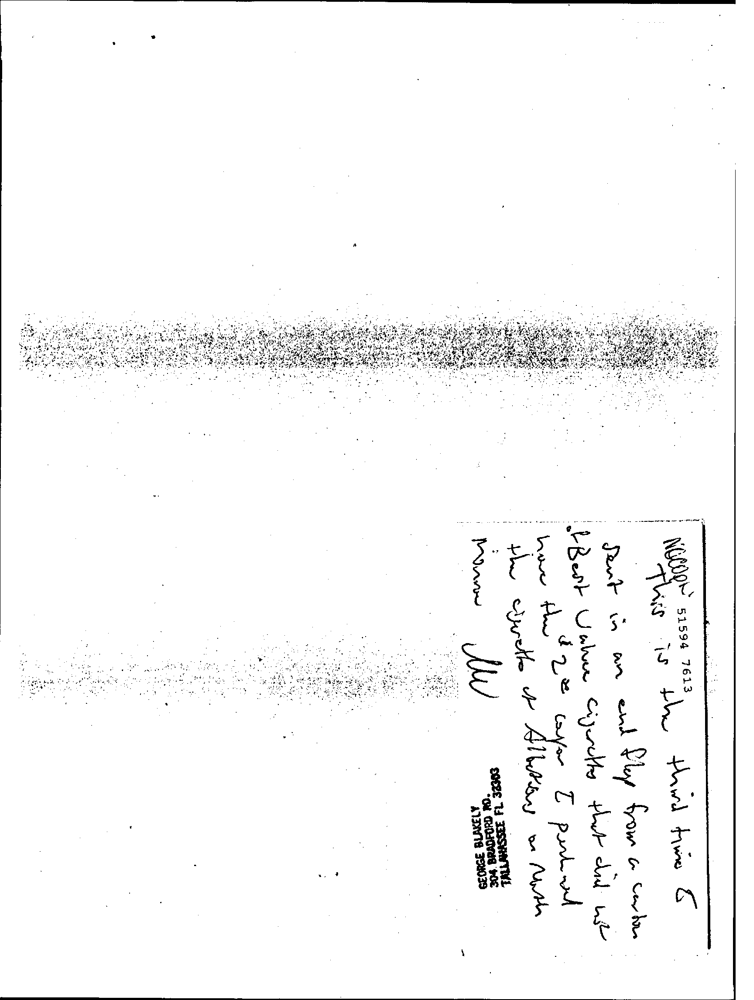 51594 7613
This is the third time I
sent in an end flap from a carton
of Best Value cigarettes that did not
have the $2 00 I
the at Albertsons on North
Monroe
GEORGE BLAKELY
304 BRADFORD RD.
TALLAHASSEE FL 32303